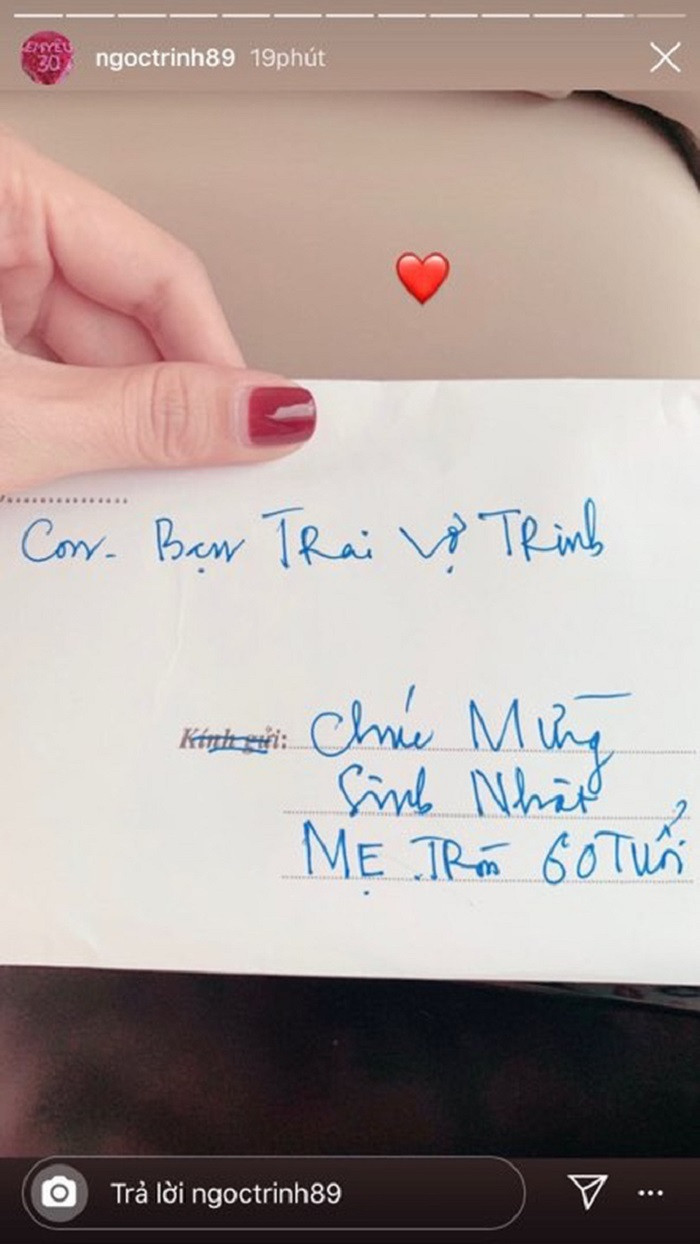 EM YÊU
30
ngoctrinh89 19phút
Con - Bạn Trai Vợ Trinh
Kính gửi: Chúc Mừng
Sinh Nhật
Mẹ Tròn 60 Tuổi
Trả lời ngoctrinh89